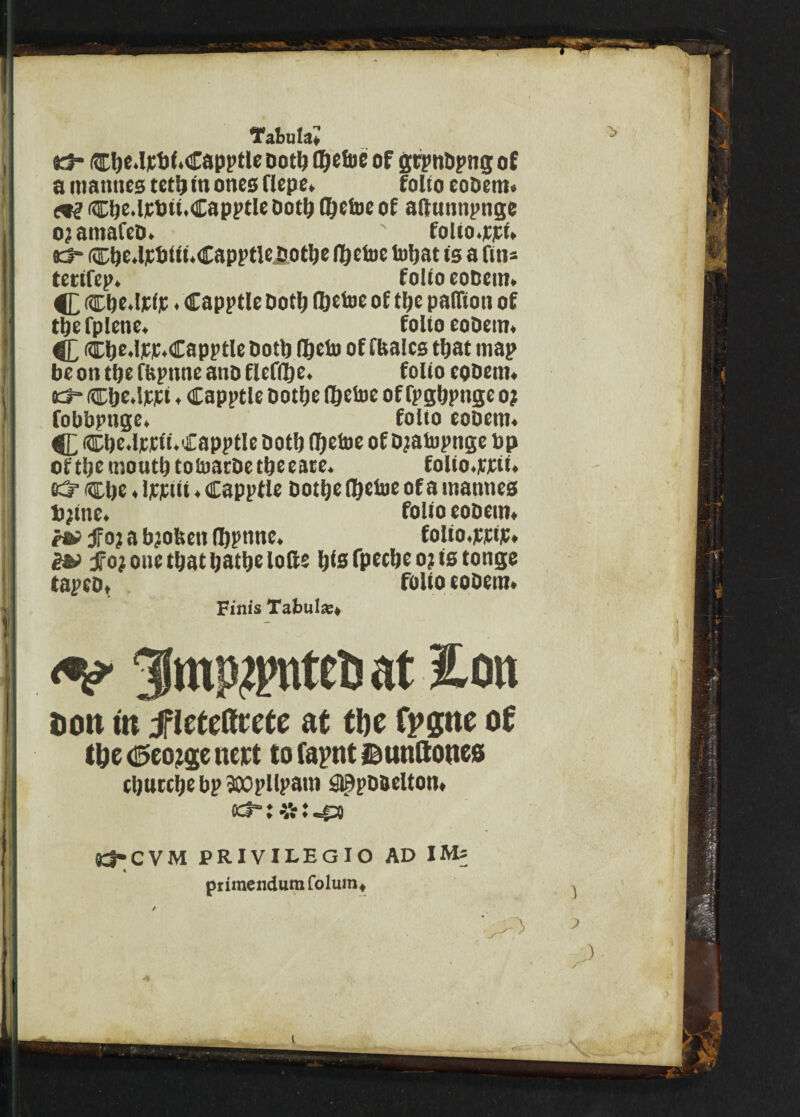 Tabula.
☞ The.lxvi.Capytle doth shewe of gryndyng of
a mannes teth in ones slepe. folio eodem.
❧ The.lxvii.Capytle doth shewe of astunnynge
or amased. folio.xxi.
☞ The.lxviii.Capytle dothe shewe what is a sin-
terisey. folio eodem.
⁋ The.lxix. Capytle doth shewe of the passion of
the splene. folio eodem.
⁋ The.lxx.Capytle doth shew of skales that may
be on the skynne and flesshe. folio eodem.
☞ The.lxxi. Capytle dothe shewe of syghynge or
sobbynge. folio eodem.
⁋ The.lxxii.Capytle doth shewe of drawynge vp
of the mouth towarde the eare. folio.xxii.
☞ The.lxxiii. Capytle dothe shewe of a mannes
vrine. folio eodem.
❧ For a broken shynne. folio.xxix.
❧ For one that hathe loste his speche or is tonge
tayed. folio eodem.
Finis Tabulæ.
❧ Imprynted at Lon
don in Fletestrete at the sygne of
the George next to saynt Dunstones
churche by Wyllyam Myddelton.
☞CVM PRIVILEGIO AD IM-
primendum solum.